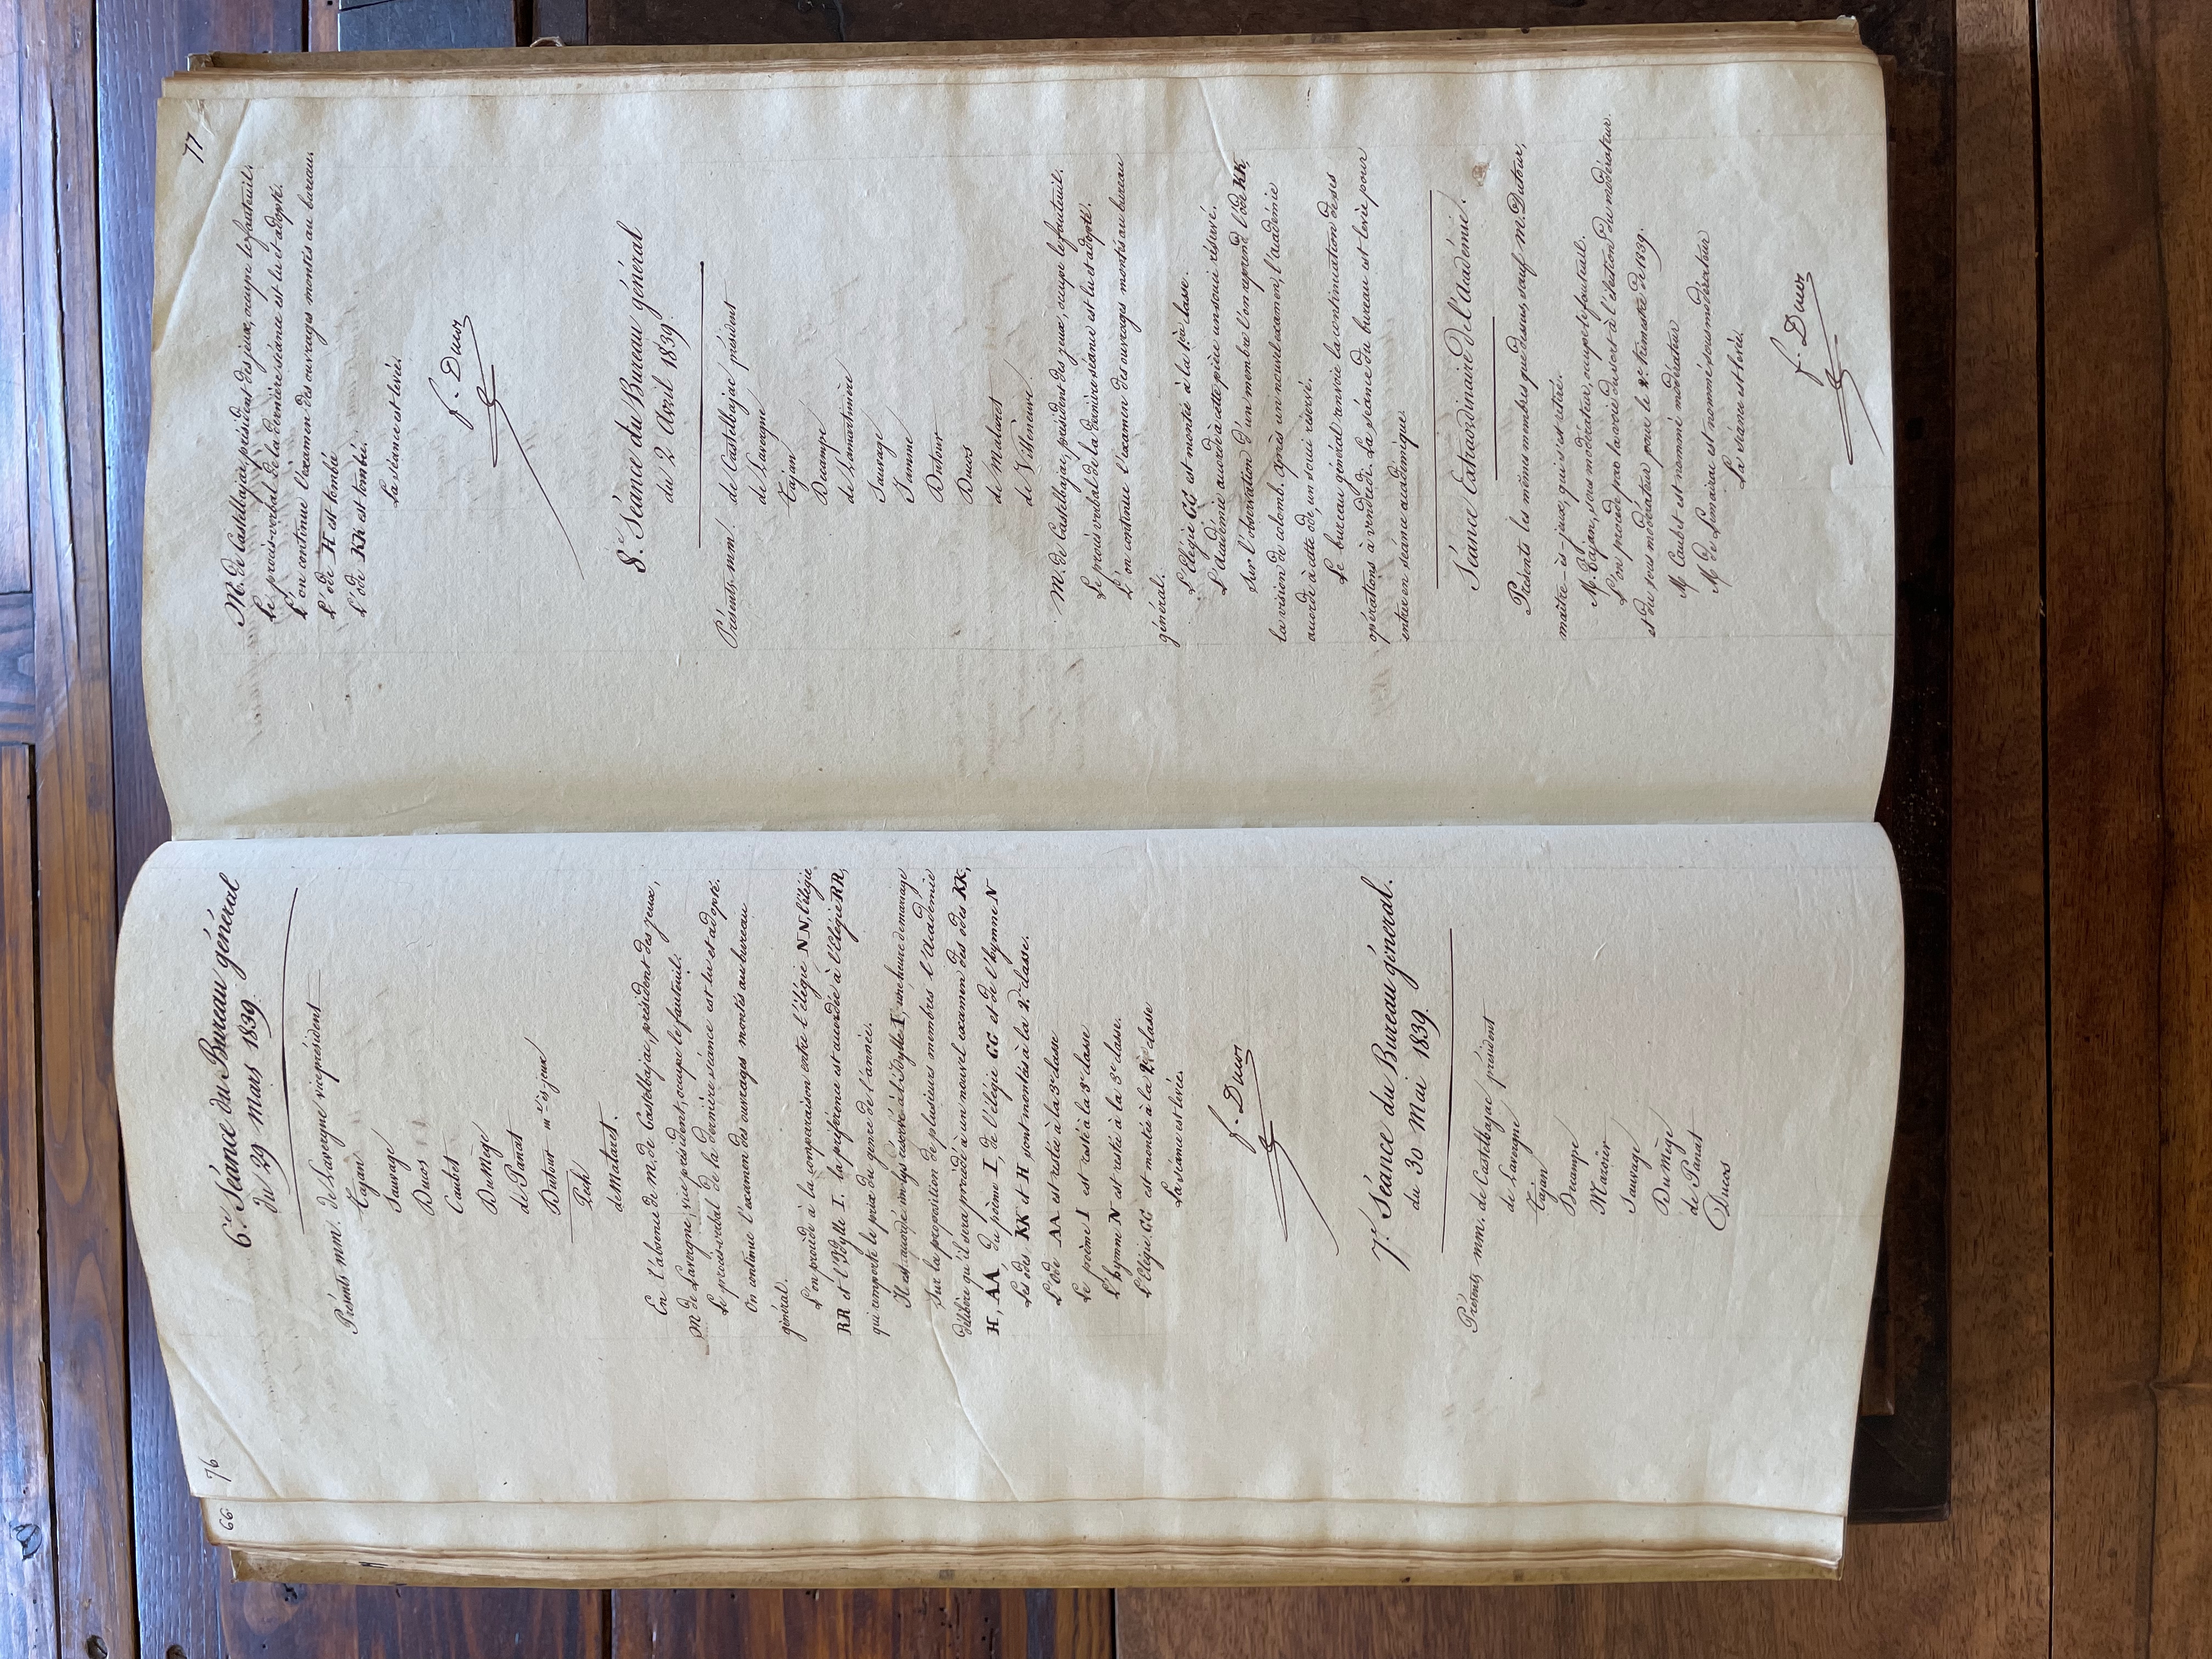 66
76
6e. Séance du Bureau général
du 29 Mars 1839.
Présents mm. de Lavergne vice président
Tajan
Sauvage
Ducos
Caubet
DuMège
de Panat
Dutour m.tre ès-jeux
Pech
de Malaret.
En l'absence de M. de Castelbajac, président des jeux,
M de Lavergne, vice président, occupe le fauteuil.
Le procès-verbal de la dernière séance est lu et adopté.
On continue l'examen des ouvrages montés au bureau
général.
L'on procède à la comparaison entre l'élégie NN, l'élégie
RR et l'Idylle I. la préférence est accordée à l'Elégie RR,
qui remporte le prix du genre de l'année.
Il est accordé un lys réservé à l'Idylle I, une heure de mariage
Sur la proposition de plusieurs membres l'Académie
délibère qu'il sera procédé à un nouvel examen des odes KK,
H, AA du poème I, de l'élégie GG et de l'hymne N
Les odes KK et H sont montées à la 2e. classe.
L'ode AA est restée à la 3e classe
Le poème I est resté à la 3e classe
L'hymne N est restée à la 3e classe.
L'Elégie GG est montée à la 2e classe
La séance est levée.
f. Ducos
7e. Séance du Bureau général.
du 30 Mai 1839.
Présents, mm. de Castelbajac président
de Lavergne
Tajan
Decampe
Mazoïer
Sauvage
DuMège
de Panat
Ducos
77
M. de Castelbajac, président des jeux, occupe le fauteuil.
Le procès-verbal de la dernière séance est lu et adopté.
L'on continue l'examen des ouvrages montés au bureau.
L'ode H est tombée
L'ode KK est tombée.
La séance est levée.
f. Ducos
8e. Séance du Bureau général
du 2 Avril 1839.
Présents, mm. de Castelbajac président
de Lavergne
Tajan
Decampe
de Lamartinière
Sauvage
Jamme
Dutour
Ducos
de Malaret
de Villeneuve
M. de Castelbajac, président des jeux, occupe le fauteuil.
Le procès verbal de la dernière séance est lu et adopté.
L'on continue l'examen des ouvrages montés au bureau
général.
L'Elégie GG est montée à la 1ère classe.
L'Académie accorde à cette pièce un souci réservé.
Sur l'observation d'un membre l'on reprend l'ode KK,
la vision de colomb. après un nouvel examen, l'académie
accorde à cette ode, un souci réservé.
Le bureau général renvoie la continuation de ses
opérations à vendredi. La séance du bureau est levée pour
entrer en séance académique.
Séance Extraordinaire de l'Académie.
Présents les mêmes membres que dessus, sauf m. Dutour,
maître-ès-jeux, qui s'est retiré.
M. Tajan, sous modérateur, occupe le fauteuil.
L'on procède par la voie du sort à l'élection du modérateur.
et du sous modérateur pour le 2e. trimestre de 1839.
M Caubet est nommé modérateur
M de Limairac est nommé sous modérateur
La séance est levée.
f. Ducos